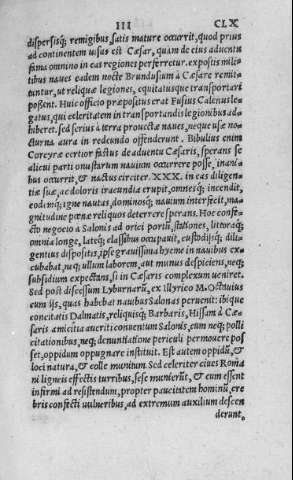 III CLX
dispersisq; remigibus, satis mature occurrit, quod prius
ad continentem uisus est Cæsar, quàm de eius aduentu
fama omnino in eas regiones perferretur. expositis mili
tibus naues eadem nocte Brundusium à Cæsare remit
tuntur, ut reliquæ legiones, equitatusque transportari
possent. Huic officio præpositus erat Fusius Calenus le
gatus, qui celeritatem in transportandis legionibus ad
hiberet. sed serius à terra prouectæ naues, neque usæ no
cturna aura in redeundo offenderunt. Bibulus enim
Corcyræ certior factus de aduentu Cæsaris, sperans se
alicui parti onustarum nauium occurrere posse, inani
bus occurrit, & nactus circiter. XXX. in eas diligen
tiæ suæ, ac doloris iracundia erupit, omnesq; incendit,
eodemq; igne nautas, dominosq; nauium interfecit, ma
gnitudine pœnæ reliquos deterrere sperans. Hoc confe
cto negocio à Salonis ad orici portū, stationes, littoraq;
omnia longe, lateq; classibus occupauit, custodiisq; dili
gentius dispositis, ipse grauissima hyeme in nauibus ex
cubabat, neq; ullum laborem, aut munus despiciens, neq;
subsidium expectans, si in Cæsaris complexum ueniret.
Sed post discessum Lyburnarū, ex illyrico M. Octauius
cum ijs, quas habebat nauibus Salonas peruenit: ibi que
concitatis Dalmatis, reliquisq; Barbaris, Hissam à Cæ-
saris amicitia auertit conuentum Salonis, cum neq; polli
citationibus, neq; denuntiatione periculi permouere pos
set, oppidum oppugnare instituit. Est autem oppidū, &
loci natura, & colle munitum. Sed celeriter ciues Roma
ni ligneis effectis turribus, sese muniērūt, & cum essent
infirmi ad resistendum, propter paucitatem hominū, cre
bris confecti uulneribus, ad extremum auxilium descen
derunt,